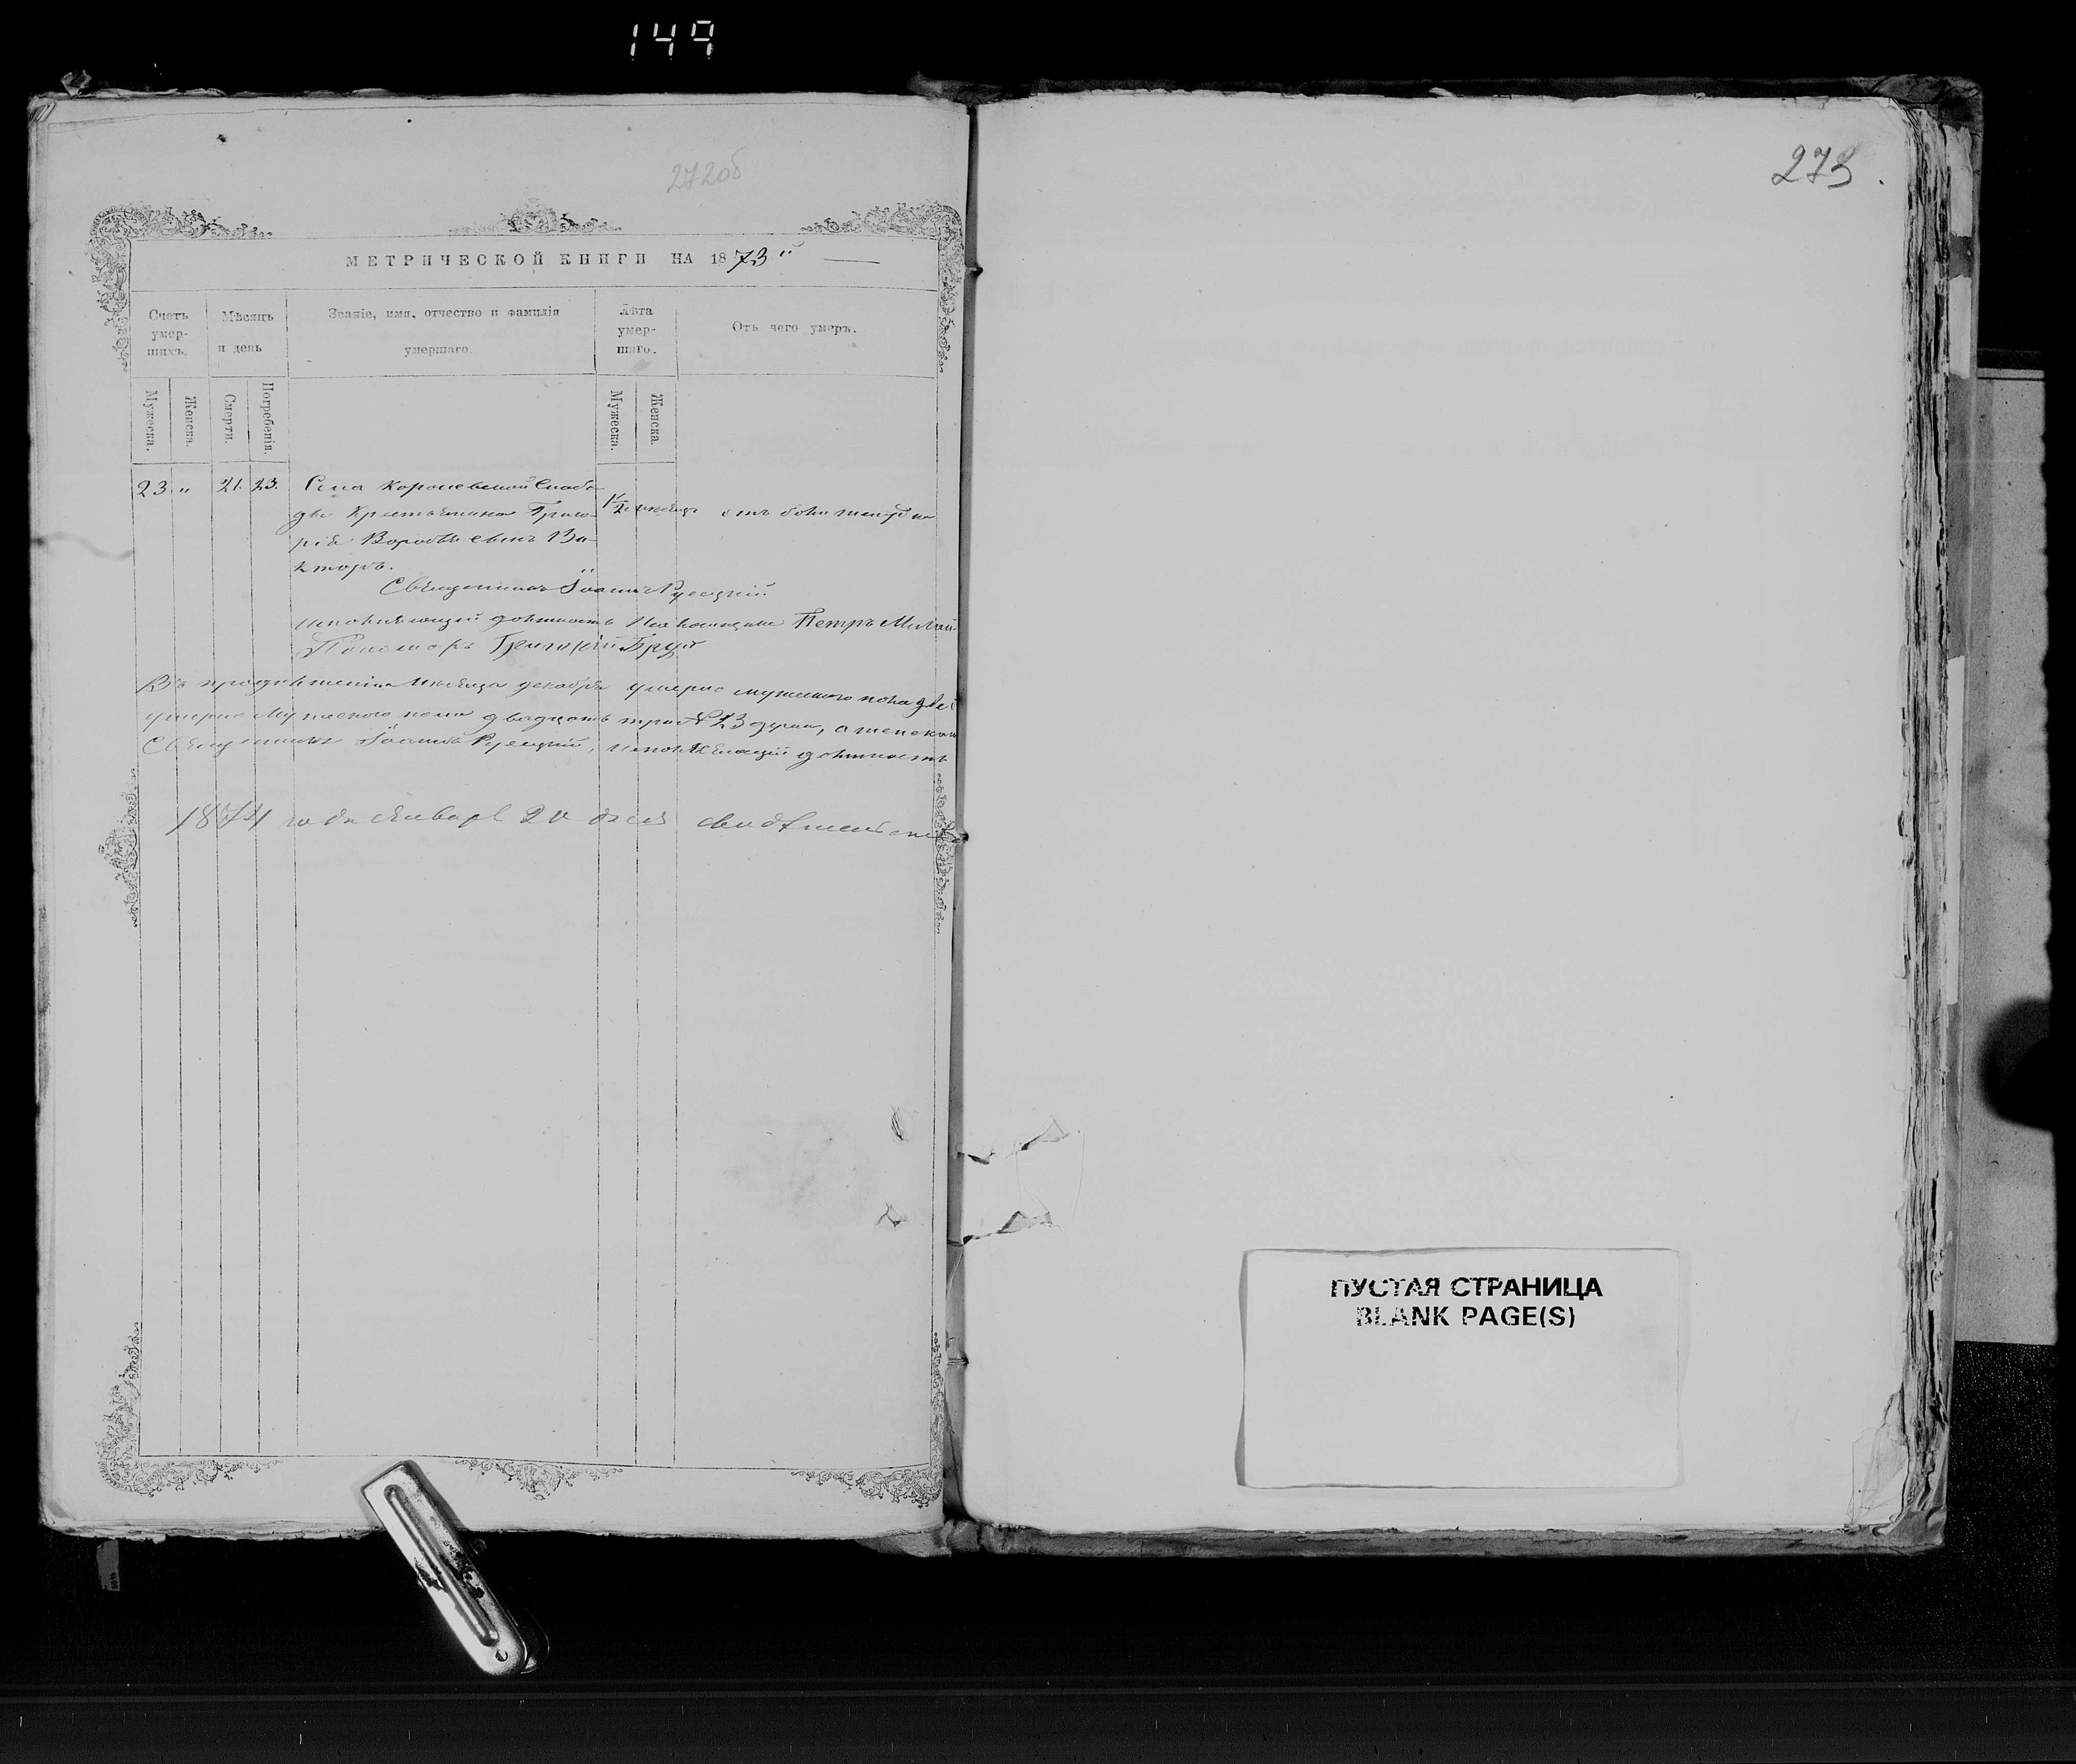 149
272об
273.
МЕТРИЧЕСКОЙ КНИГИ НА 1873й
Счетъ умер-
шихъ.
Мѣсяцъ
и день
Званіе, имя, отчество и фамилія
умершаго.
Лѣта
умер-
шаго.
Отъ чего умеръ.
Мужеска.
Женска.
Смерти.
Погребенія.
Мужеска.
Женска.
23. " 21. 23. Села Королевской Слобо-
ды Крестьянина Григо-
рія Воробьева сынъ Ви-
кторъ.
1½ мѣсяца отъ
Священникъ Іоаннъ Русецкій
исполняющій должность Псаломщика Петръ
Пономарь Григорій
Въ продолженіи мѣсяца декабря умерло мужескаго пола двѣ
умерло Мужескаго пола двадцать три 23 души, а женскаго
Священникъ Іоаннъ Русецкій, исполняющій должность
1874 года Января 20 дня
ПУСТАЯ СТРАНИЦА
BLANK PAGE(S)